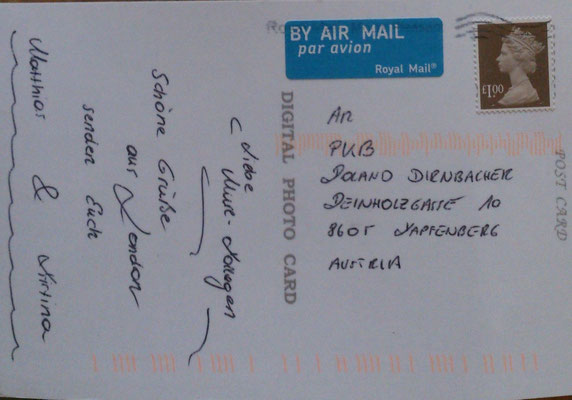 BY AIR MAIL
par avion
Royal Mail®
£1.00
POST CARD
DIGITAL PHOTO CARD
An
PKB
ROLAND DIRNBACHER
DEINHOLZGASSE 10
8605 KAPFENBERG
AUSTRIA
Liebe
Kollegen
Schöne Grüße
aus London
senden Euch
Matthias & Kristina